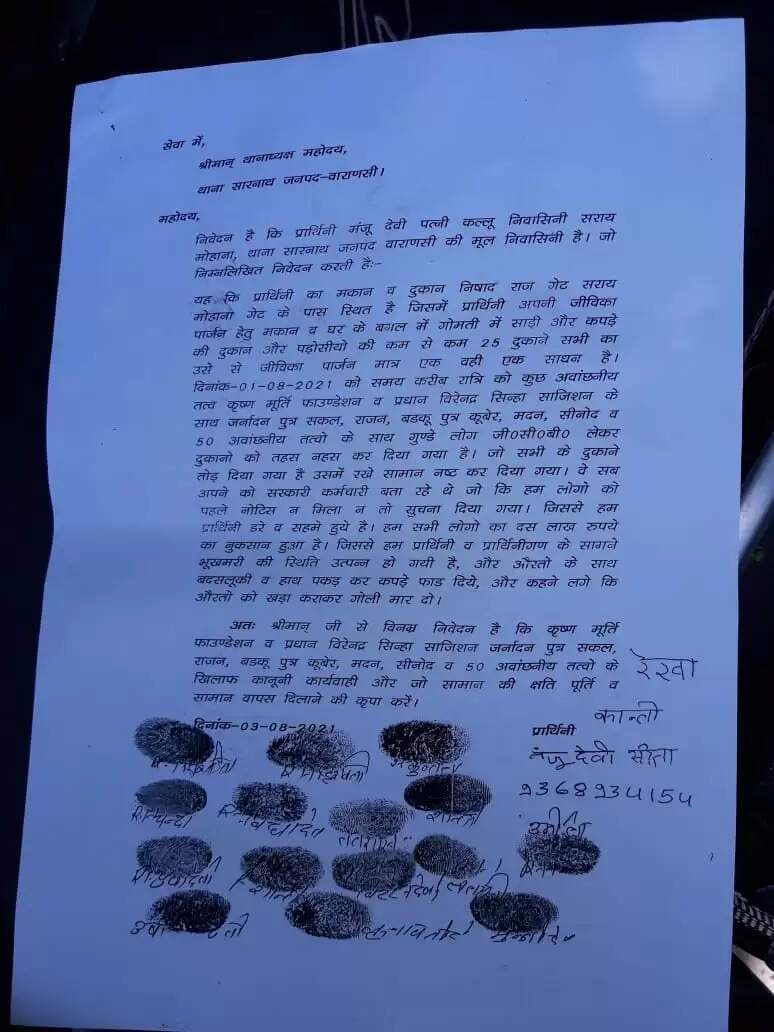 सेवा में,
श्रीमान् थानाध्यक्ष महोदय,
थाना सारनाथ जनपद-वाराणसी।
महोदय,
निवेदन है कि प्रार्थिनी मंजू देवी पत्नी कल्लू निवासिनी सराय
मोहाना, थाना सारनाथ जनपद वाराणसी की मूल निवासिनी है। जो
निम्नलिखित निवेदन करती हैः-
यह कि प्रार्थिनी का मकान व दुकान निषाद राज गेट सराय
मोहाना गेट के पास स्थित है जिसमें प्रार्थिनी अपनी जीविका
पार्जन हेतु मकान व घर के बगल में गोमती में साड़ी और कपड़े
की दुकान और पड़ोसीयो की कम से कम 25 दुकाने सभी का
उसे से जीविका पार्जन मात्र एक वही एक साधन है।
दिनांक-01-08-2021 को समय करीब रात्रि को कुछ अवांछनीय
तत्व कृष्ण मूर्ति फाउण्डेशन व प्रधान विरेनद्र सिन्हा साजिशन के
साथ जर्नादन पुत्र सकल, राजन, बडकू पुत्र कूबेर, मदन, सीनोद व
50 अवांछनीय तत्वो के साथ गुण्डे लोग जी0सी0बी0 लेकर
दुकानो को तहस नहस कर दिया गया है। जो सभी के दुकाने
तोड़ दिया गया है उसमें रखे सामान नष्ट कर दिया गया। वे सब
अपने को सरकारी कर्मचारी बता रहे थे जो कि हम लोगो को
पहले नोटिस न मिला न तो सुचना दिया गया। जिससे हम
प्रार्थिनी डरे व सहमे हुये है। हम सभी लोगो का दस लाख रुपये
का नुकसान हुआ है। जिससे हम प्रार्थिनी व प्रार्थिनीगण के सामने
भूखमरी की स्थिति उत्पन्न हो गयी है, और औरतो के साथ
बदसलूकी व हाथ पकड़ कर कपड़े फाड दिये, और कहने लगे कि
औरतो को खड़ा कराकर गोली मार दो।
अतः श्रीमान् जी से विनम्र निवेदन है कि कृष्ण मूर्ति
फाउण्डेशन व प्रधान विरेनद्र सिन्हा साजिशन जर्नादन पुत्र सकल,
राजन, बडकू पुत्र कूबेर, मदन, सीनोद व 50 अवांछनीय तत्वो के
खिलाफ कानूनी कार्यवाही और जो सामान की क्षति पूर्ति व
सामान वापस दिलाने की कृपा करें।
रेखा
कान्ती
दिनांक-03-08-2021
प्रार्थिनी
मंजू देवी सीता
9368934154